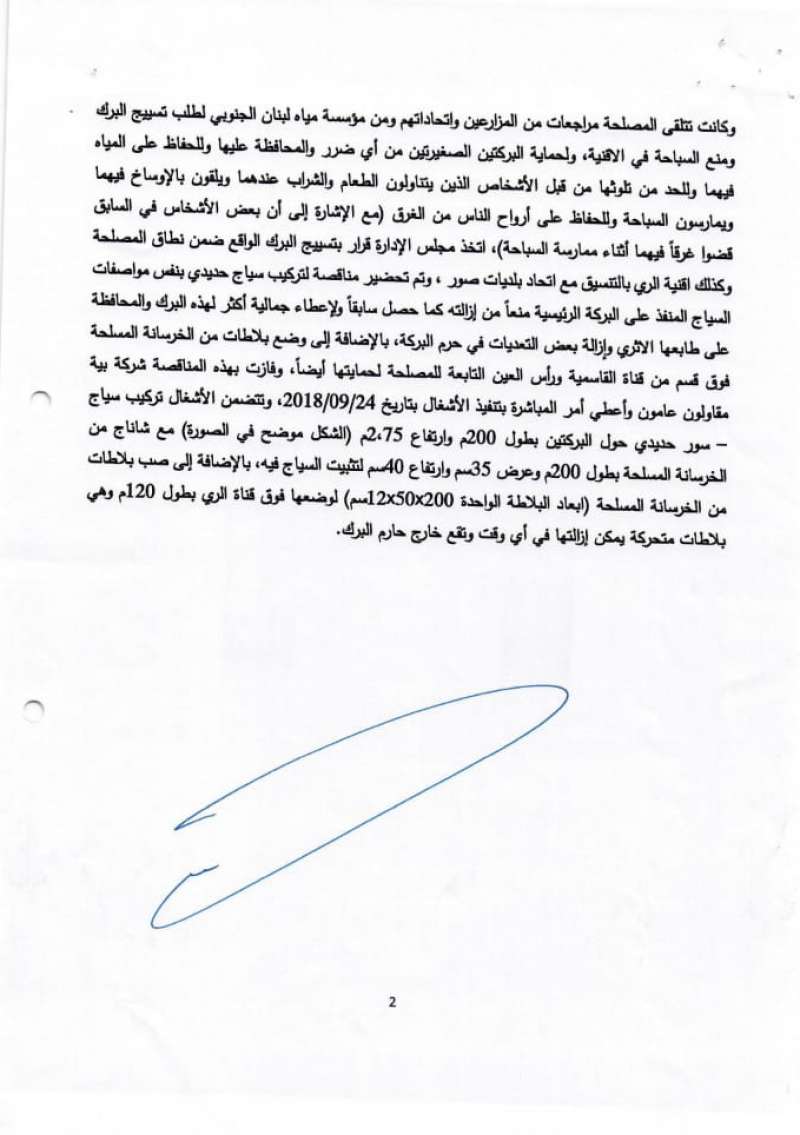 وكانت تتلقى المصلحة مراجعات من المزارعين واتحاداتهم ومن مؤسسة مياه لبنان الجنوبي لطلب تسييج البرك
ومنع السباحة في الاقنية، ولحماية البركتين الصغيرتين من أي ضرر والمحافظة عليها وللحفاظ على المياه
فيهما وللحد من تلوثها من قبل الأشخاص الذين يتناولون الطعام والشراب عندهما ويلقون بالإوساخ فيهما
ويمارسون السباحة وللحفاظ على أرواح الناس من الغرق (مع الإشارة إلى أن بعض الأشخاس في السابق
قضوا غرقاً فيهما أثناء ممارسة السباحة)، اتخذ مجلس الإدارة قرار بتسييج البرك الواقع ضمن نطاق المصلحة
وكذلك اقنية الري بالتنسيق مع اتحاد بلديات صور ، وتم تحضير مناقصة لتركيب سياج حديدي بنفس مواصفات
السياج المنفذ على البركة الرئيسية منعاً من إزالته كما حصل سابقاً ولإعطاء جمالية أكثر لهذه البرك والمحافظة
على طابعها الاثري وإزالة بعض التعديات في حرم البركة، بالإضافة إلى وضع بلاطات من الخرسانة المسلحة
فوق قسم من قناة القاسمية ورأس العين التابعة للمصلحة لحمايتها أيضاً، وفازت بهذه المناقصة شركة بية
مقاولون عامون وأعطي أمر المباشرة بتنفيذ الأشغال بتاريخ 2018/09/24، وتتضمن الأشغال تركيب سياج
– سور حديدي حول البركتين بطول 200م وارتفاع 2،75م (الشكل موضح في الصورة) مع شاناج من
الخرسانة المسلحة بطول 200م وعرض 35سم وارتفاع 40سم لتثبيت السياج فيه، بالإضافة إلى صب بلاطات
من الخرسانة المسلحة (ابعاد البلاطة الواحدة 200x50x12سم) لوضعها فوق قناة الري بطول 120م وهي
بلاطات متحركة يمكن إزالتها في أي وقت وتقع خارج حارم البرك.
2